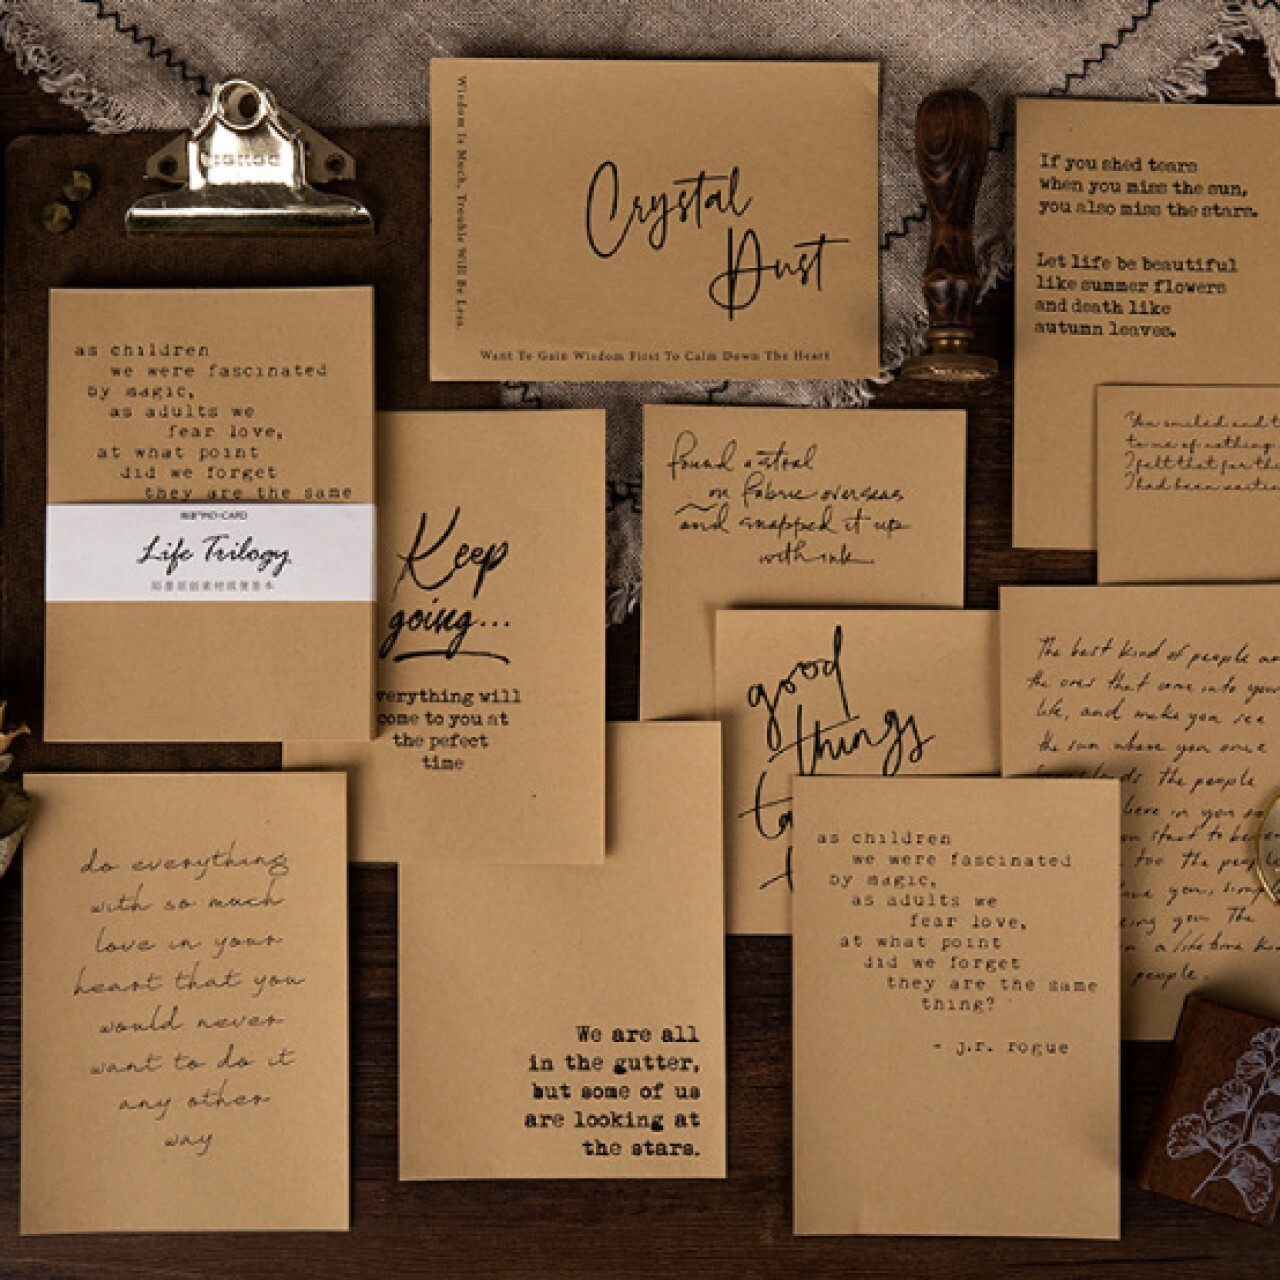 Wisdom Is Much, Trouble Will Be Less.
Crystal
Dust
Want To Gain Wisdom First To Calm Down The Heart
If you shed tears
when you miss the sun,
you also miss the stars.
Let life be beautiful
like summer flowers
and death like
autumn leaves.
as children
we were fascinated
by magic,
as adults we
fear love,
at what point
did we forget
they are the same
MO·CARD
Life Trilogy
Keep
going...
verything will
come to you at
the pefect
time
found a
on fabric overseas
and snapped it up
with ink
You smiled and
to me of nothing
I felt that for
I had been
good
things
ta
The best kind of people
the ones that come into your
life, and make you see
the sun where you once
the people
here in you so
start to
too The people
you,
ing you The
a life time
people.
do everything
with so much
love in your
heart that you
would never
want to do it
any other
way
We are all
in the gutter,
but some of us
are looking at
the stars.
as children
we were fascinated
by magic,
as adults we
fear love,
at what point
did we forget
they are the same
thing?
- j.r. rogue